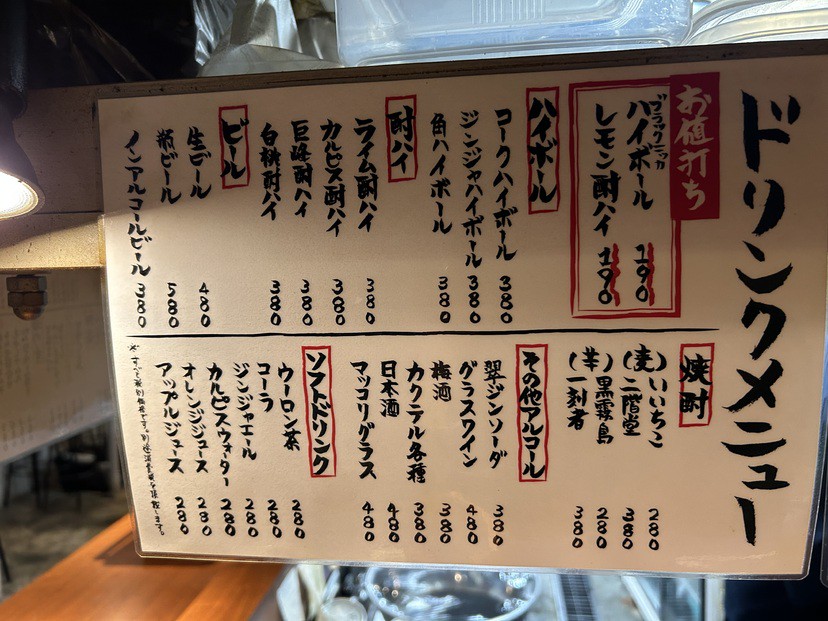 ドリンクメニュー
お値打ち
ブラックニッカ
ハイボール 190
レモン酎ハイ 190
ハイボール
コークハイボール 380
ジンジャハイボール 380
角ハイボール 380
酎ハイ
ライム酎ハイ 380
カルピス酎ハイ 380
巨峰酎ハイ 380
白桃酎ハイ 380
ビール
生ビール 480
瓶ビール 580
ノンアルコールビール 380
焼酎
(麦)いいちこ 280
二階堂 380
(芋)黒霧島 280
一刻者 380
その他アルコール
翠ジンソーダ 380
グラスワイン 480
梅酒 380
カクテル各種 380
日本酒 480
マッコリグラス 480
ソフトドリンク
ウーロン茶 280
コーラ 280
ジンジャエール 280
カルピスウォーター 280
オレンジジュース 280
アップルジュース 280
※すべて税別価格です。別途消費税を頂戴します。